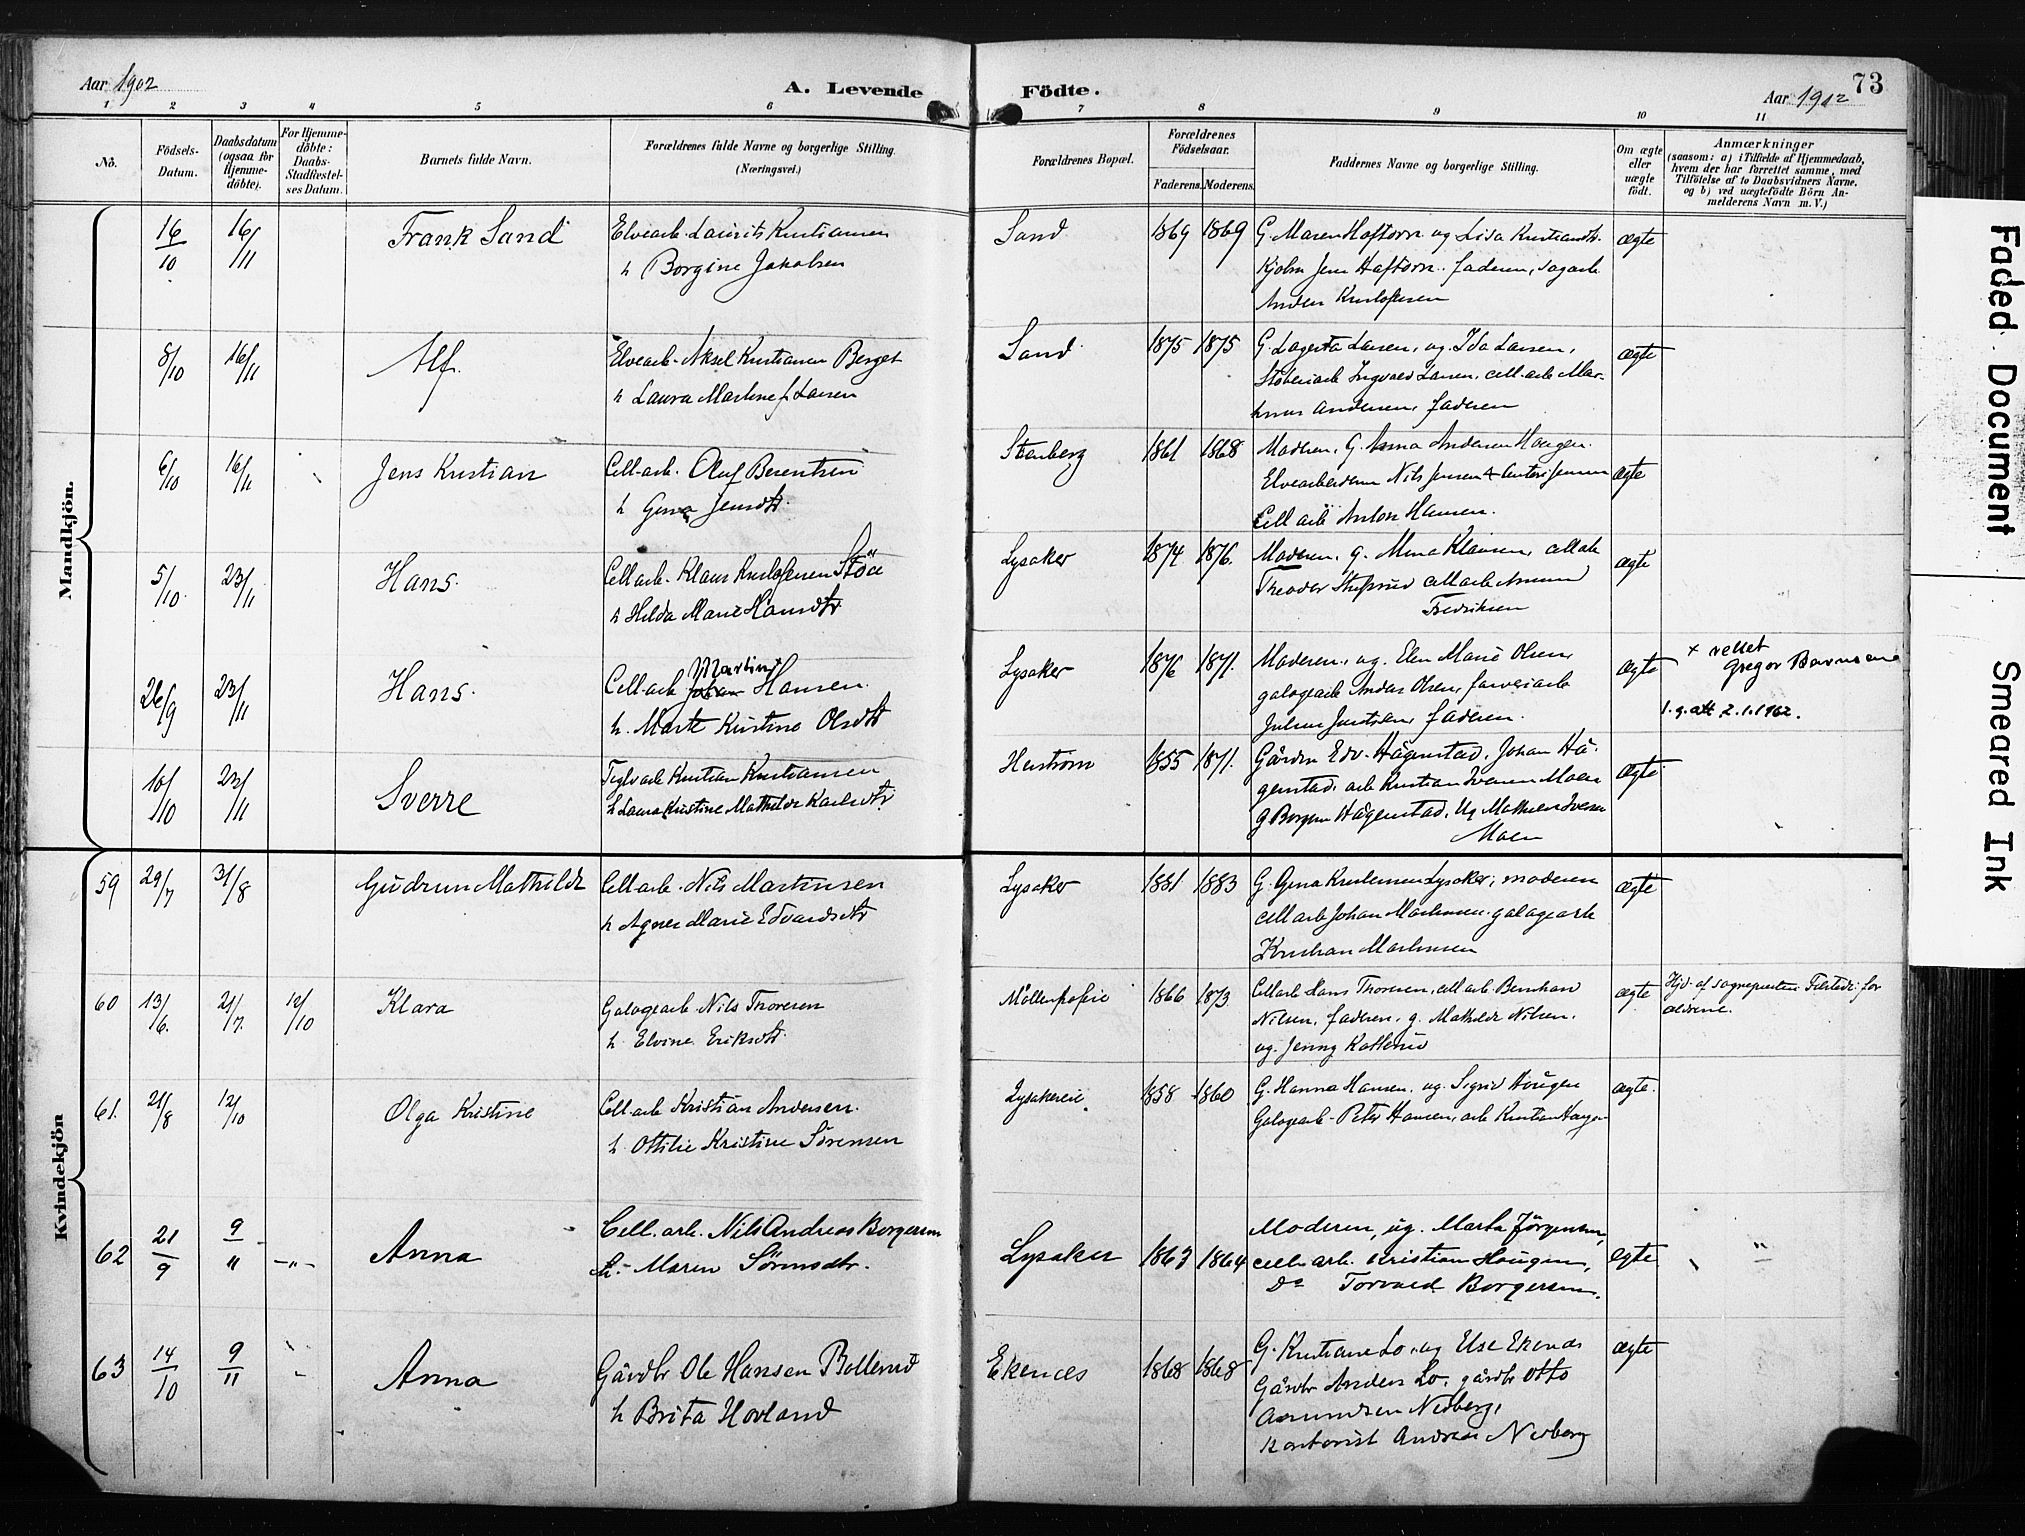 Aar 1902
A. Levende Födte.
Aar 1902
73
1 2 3 4 5 6 7 8 9 10 11
No.
Födsels-Datum.
Daabsdatum (ogsaa for Hjemme-döbte).
For Hjemme-döbte: Daabs-Stadfæstel-ses Datum.
Barnets fulde Navn.
Forældrenes fulde Navne og borgerlige Stilling.
(Næringsvei.)
Forældrenes Bopæl.
Forældrenes Födselsaar.
Faderens. Moderens.
Faddernes Navne og borgerlige Stilling.
Om ægte eller uægte födt.
Anmærkninger
(saasom: a) i Tilfælde af Hjemmedaab,
hvem der har forrettet samme, med
Tilföielse af to Daabsvidners Navne,
og b) ved uægtefödte Börn An-
melderens Navn m. V.)
Mandkjön.
16/10 16/11 Frank Sand
Elvearb. Laurits Kristiansen
h Borgine Jakobsen
Sand 1869 1869
G. Maren Haftorn og Lisa
Jens Haftorn. faderen, sagarb.
Anders Kristofersen
ægte
8/10 16/11 Alf.
Elvearb. Aksel Kristiansen Berget
h Laura Martine f. Larsen
Sand 1875 1875
G. Lagerta Larsen, ug. Ida Larsen,
Ingvald Larsen, cell.arb. Mar-
tinus Andersen, faderen
ægte
6/10 16/11 Jens Kristian
Cell.arb. Oluf Berentsen
h Jensdtr.
Stenberg 1861 1868
Moderen, G. Anna Andersen Haugen.
Elvearbeiderne Nils Jensen & Jensen
Cell arb Anton Hansen.
ægte
5/10 23/11 Hans.
Cellarb. Klaus Kristofersen Stöa
h Hilda Marie Hansdtr
Lysaker 1874 1876.
Moderen, g. Mina Klausen, cellarb
Theodor cellarb
Fredriksen
ægte
26/9 23/11 Hans.
Martin
Cell.arb Johan Hansen.
h. Marte Kristine Olsdtr
Lysaker 1876 1871.
Moderen, ug. Elen Marie Olsen,
galogearb Andas Olsen, farveriarb
Julius faderen.
ægte
+ rettet
Gregor
2.1.1962.
10/10 23/11 Sverre
Teglvarb Kristian Kristiansen
h Laura Kristine Mathilde Karlsdtr
Herstrøm 1855 1871.
Gårdm Edv. Hågenstad, Johan Hå-
genstad, arb Kristian Iversen Moen
g Borgine Hågenstad, Ug Mathea Iversen
Moen
ægte
Kvindekjön
59 29/7 31/8 Gudrun Mathilde
Cell.arb. Nils Martinsen
h Agnes Marie Edvardsdtr
Lysaker 1881 1883
G. Gina Kristensen Lysaker, moderen
cellarb Johan Martinsen. galogearb
Kristian Martinsen
ægte
60 13/6. 21/7. 12/10 Klara
Galogearb. Nils Thoresen
h. Elvine Eriksdtr.
Möllenhofeie 1866 1873
Cellarb Hans Thoresen, cell arb. Bernhard
Nilsen, faderen, g. Mathilde Nilsen.
ug. Jenny Kolterud
ægte
Hjd. af sognepresten for
61. 21/8 12/10 Olga Kristine
Cell.arb Kristian Andersen.
h. Ottilie Kristine Sörensen
Lysakereie 1858 1860
G. Hanna Hansen, ug. Sigrid Haugen
Galogearb. Peter Hansen, arb Kristian Haugen
ægte.
62 21/9 9/11 -"- Anna
Cell. arb. Nils Andreas Borgersen
h. Maren Sörensdtr.
Lysaker 1863 1864
Moderen, ug. Marta Jörgensen,
cell. arb. Kristian Haugen,
Do Torvald Borgersen.
ægte
"
63 14/10 9/11 Anna
Gårdbr Ole Hansen Bollerud
h Brita Hovland
Ekenes 1868 1868
G. Kristiane Lo, ug Else Ekenes
Gårdbr Anders Lo, gårdbr Otto
Asmundsen Nedberg,
kontorist Andreas Nedberg
ægte
Faded Document
Smeared Ink